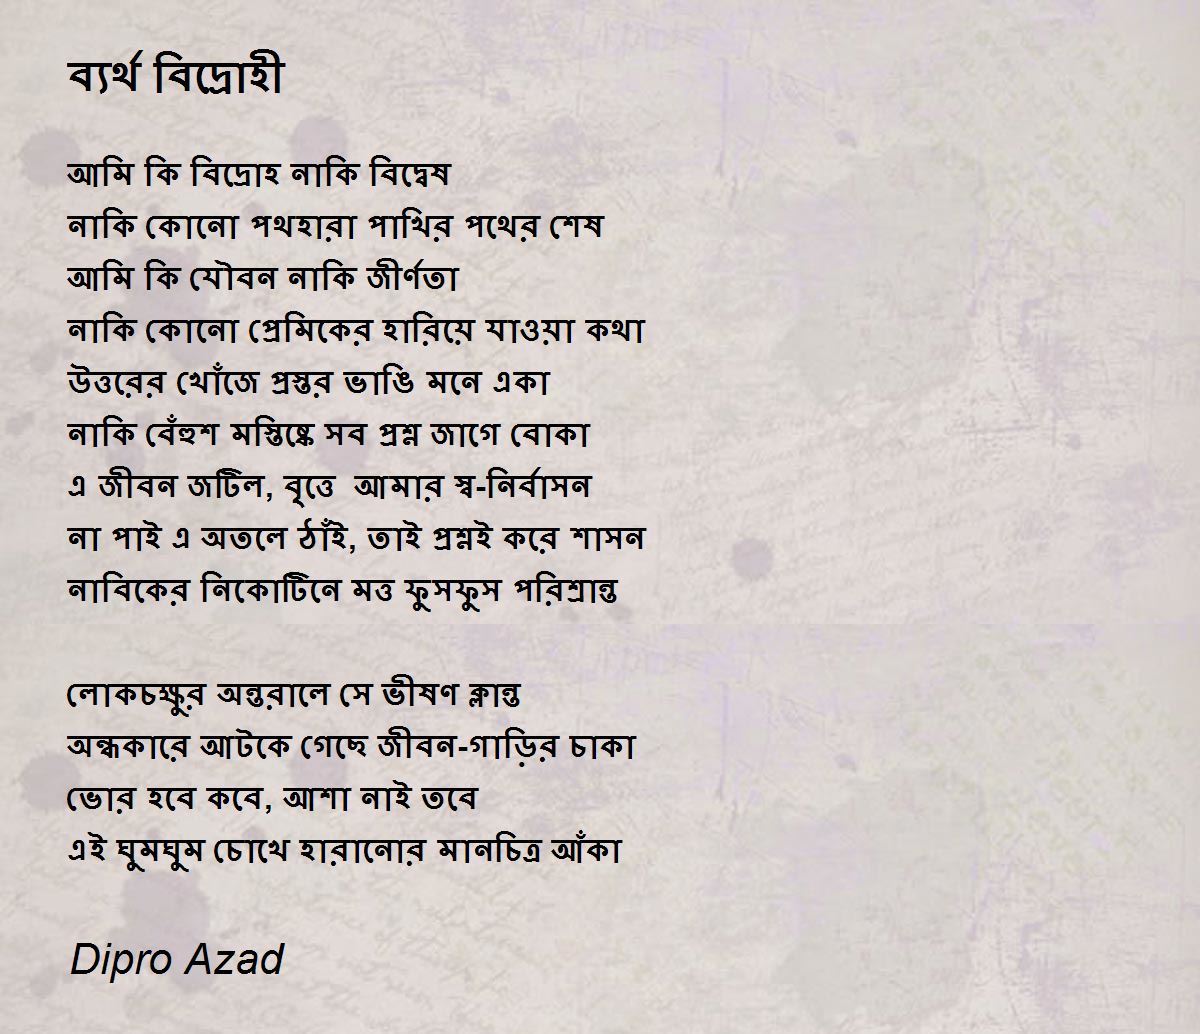 ব্যর্থ বিদ্রোহী
আমি কি বিদ্রোহ নাকি বিদ্বেষ
নাকি কোনো পথহারা পাখির পথের শেষ
আমি কি যৌবন নাকি জীর্ণতা
নাকি কোনো প্রেমিকের হারিয়ে যাওয়া কথা
উত্তরের খোঁজে প্রস্তর ভাঙি মনে একা
নাকি বেঁহুশ মস্তিষ্কে সব প্রশ্ন জাগে বোকা
এ জীবন জটিল, বৃত্তে আমার স্ব-নির্বাসন
না পাই এ অতলে ঠাঁই, তাই প্রশ্নই করে শাসন
নাবিকের নিকোটিনে মত্ত ফুসফুস পরিশ্রান্ত
লোকচক্ষুর অন্তরালে সে ভীষণ ক্লান্ত
অন্ধকারে আটকে গেছে জীবন-গাড়ির চাকা
ভোর হবে কবে, আশা নাই তবে
এই ঘুমঘুম চোখে হারানোর মানচিত্র আঁকা
Dipro Azad